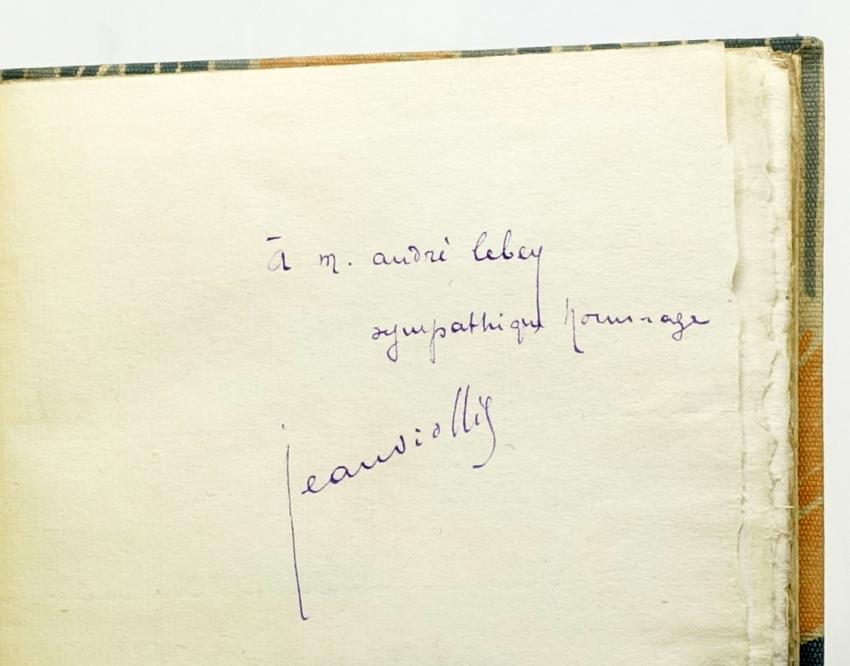 à m. andré lebey
sympathique hommage
jean viollis